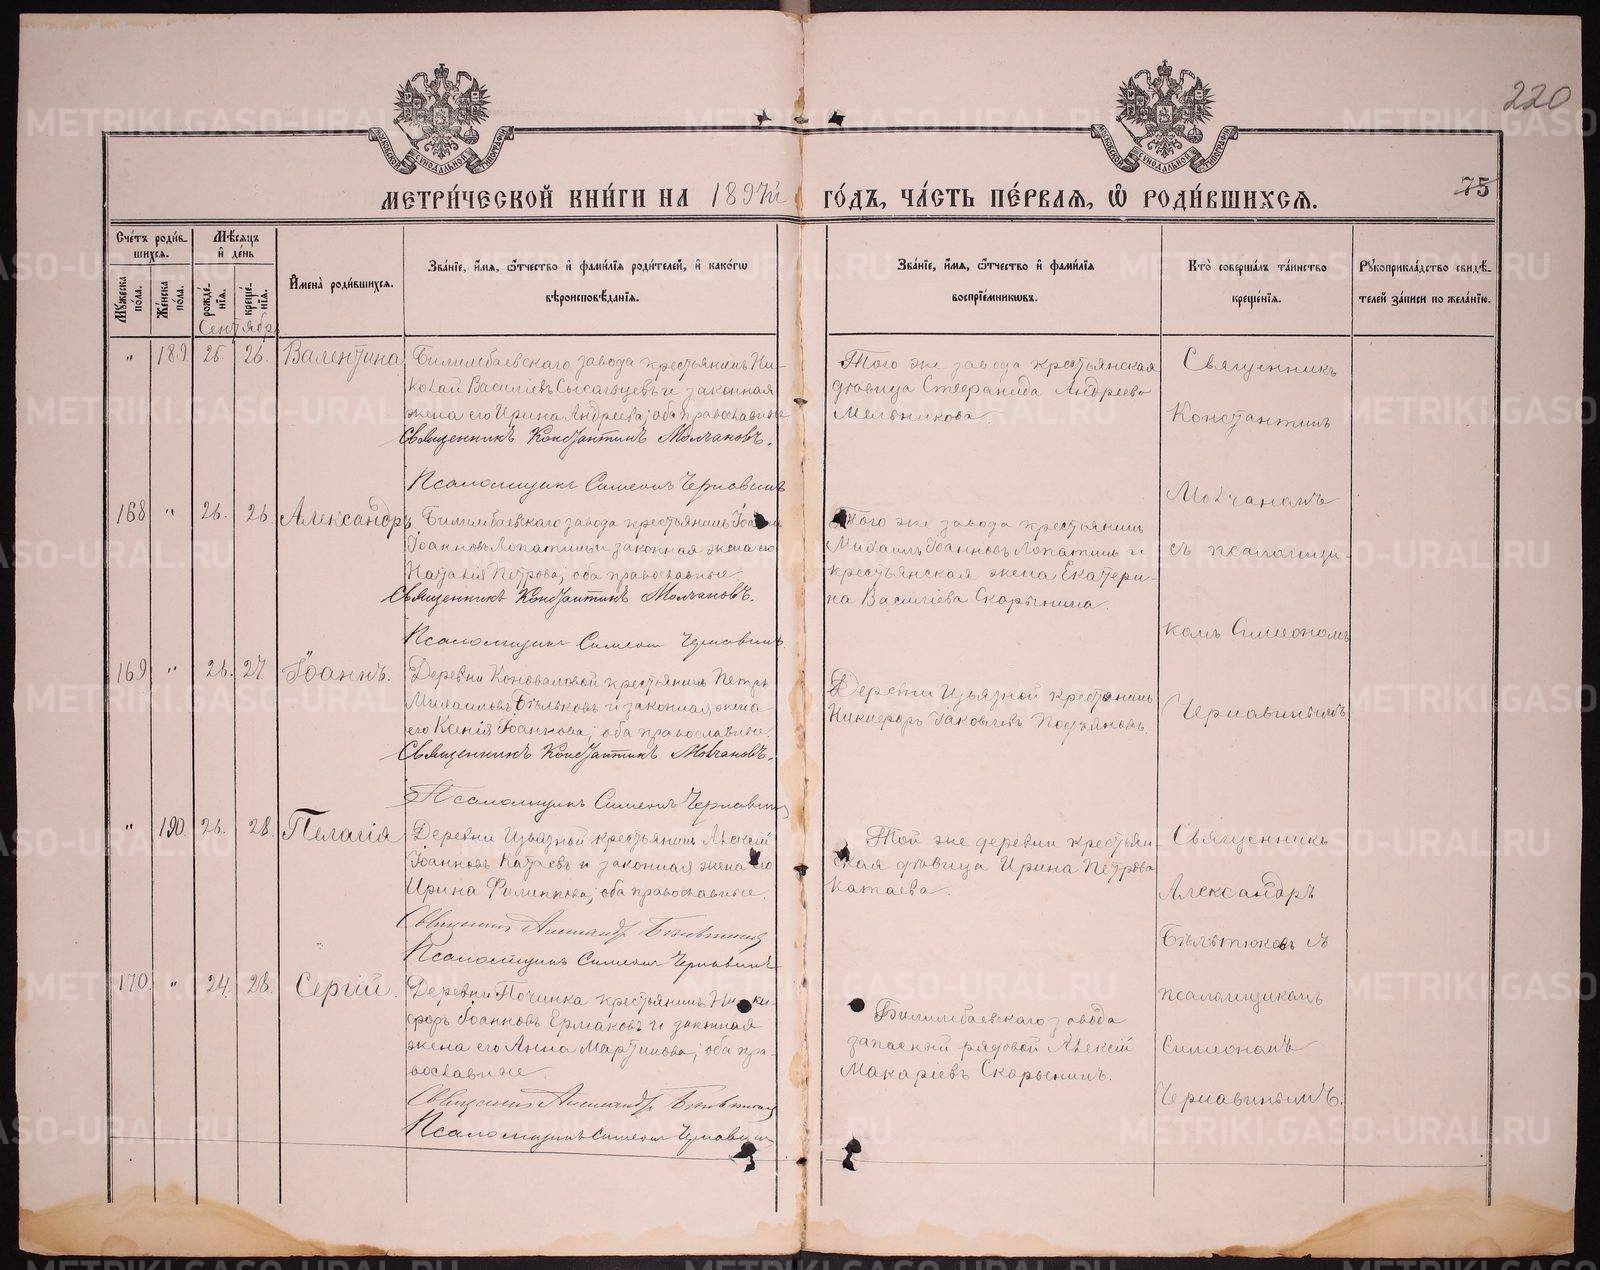 220
МЕТРИ́ЧЕСКОЙ КНИ́ГИ НА 1897й ГО́ДЪ, ЧА́СТЬ ПЕ́РВАѦ, Ѡ РОДИ́ВШИХСѦ.
75
Сче́тъ роди́вшихсѧ.
Му́жеска по́ла.
Же́нска по́ла.
Мѣ́сѧцъ и҆ де́нь
рожде́нїѧ.
креще́нїѧ.
И҆мена̀ роди́вшихсѧ.
Зва́нїе, и҆́мѧ, ѻ҆́тчество и҆ фами́лїѧ роди́телей, и҆ како́гѡ
вѣроисповѣ́данїѧ.
Зва́нїе, и҆́мѧ, ѻ҆́тчество и҆ фами́лїѧ
воспрїе́мникѡвъ.
Кто̀ соверша́лъ та́инство
креще́нїѧ.
Рꙋкоприкла́дство свидѣ́телей за́писи по жела́нїю.
Сентябрь
" 189. 25. 26. Валентина
Билимбаевскаго завода крестьянинъ Ни-
колай Васильевъ и законная
жена его Ирина Андреева; оба православные
Священникъ Константинъ Молчановъ.
Псаломщикъ Симеонъ Чернавинъ
Того же завода крестьянская
девица Стефанида Андреева
Мельникова.
Священникъ
Константинъ
Молчановъ
съ псаломщи-
комъ Симеономъ
Чернавинымъ
168 " 26. 26. Александръ
Билимбаевскаго завода крестьянинъ Іоаннъ
Іоанновъ Лопатинъ и законная жена его
Наталія Петрова; оба православные
Священникъ Константинъ Молчановъ.
Псаломщикъ Симеонъ Чернавинъ
Того же завода крестьянинъ
Михаилъ Іоанновъ Лопатинъ и
крестьянская жена Екатери-
на Васильева Скорынина.
169 " 26. 27. Іоаннъ.
Деревни Коноваловой крестьянинъ Петръ
Михаиловъ Бѣльковъ и законная жена
его Ксенія Іоаннова; оба православные.
Священникъ Константинъ Молчановъ.
Псаломщикъ Симеонъ Чернавинъ
Деревни Извязной крестьянинъ
Никифоръ Іаковлевъ
" 190. 26. 28. Пелагія
Деревни Извязной крестьянинъ Алексій
Іоанновъ Катаевъ и законная жена его
Ирина Филиппова; оба православные.
Священникъ Александръ
Псаломщикъ Симеонъ Чернавинъ
Той же деревни крестьян-
ская девица Ирина Петрова
Катаева.
Священникъ
Александръ
съ
псаломщикомъ
Симеономъ
Чернавинымъ.
170. " 24. 28. Сергій.
Деревни Починка крестьянинъ Ники-
форъ Іоанновъ Ермаковъ и законная
жена его Анна Мартинова; оба пра-
вославные.
Священникъ Александръ
Псаломщикъ Симеонъ Чернавинъ
Билимбаевскаго завода
запасный рядовой Алексій
Макаріевъ Скорынинъ.
METRIKI.GASO-URAL.RU